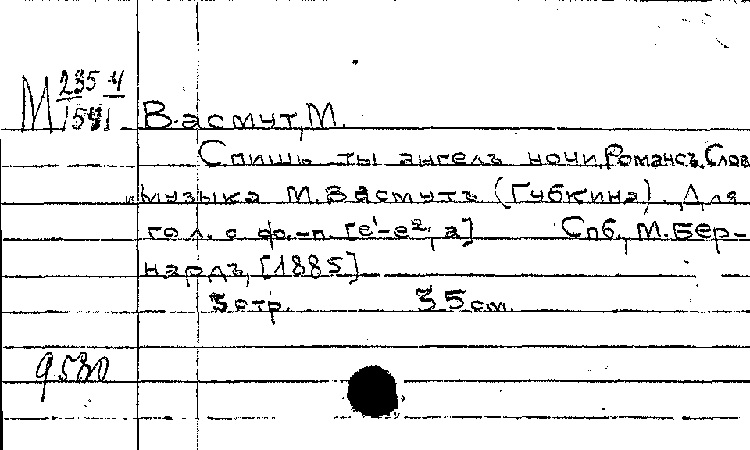 М 235-4
1541
Васмут, М.
Спишь ты ангелъ ночи. Романсъ. Слов
музыка М. Васмутъ (Губкина). Для
гол. с фо.-п. [e¹-e², a] Спб., М. Бер-
нардъ, [1885]
3 стр. 35 см.
9580